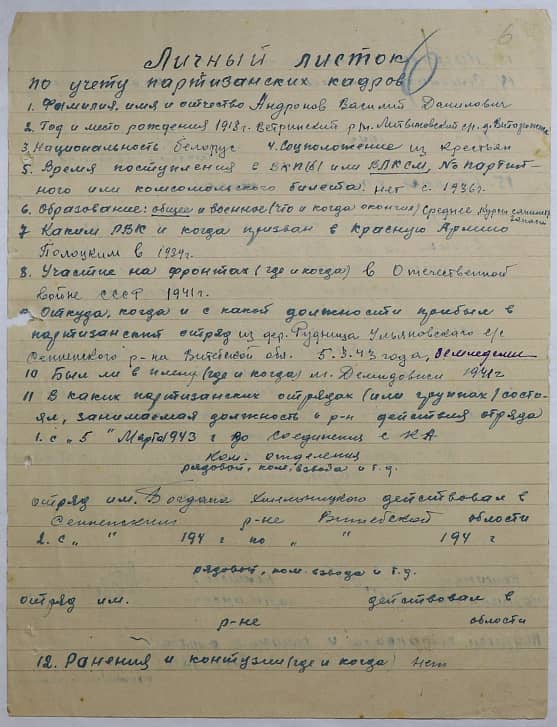 6
Личный листок
по учету партизанских кадров
1. Фамилия, имя и отчество Андронов Василий Данилович
2. Год и место рождения 1918г. Ветринский р/н. Митьковский с/с. д.
3. Национальность белорус 4. Соцположение из крестьян
5. Время поступления в ВКП(б) или ВЛКСМ, № партий-
ного или комсомольского билета нет с. 1936г.
6. Образование: общее и военное (что и когда окончил) Среднее Курсы
7 Каким РВК и когда призван в Красную Армию
Полоцким в 1939г.
8. Участие на фронтах (где и когда) в Отечественной
войне СССР 1941г.
9 Откуда, когда и с какой должности прибыл в
партизанский отряд из дер. Рудница Ульяновского с/с
Сеннинского р-на Витебской обл. 5.3.43 года,
10 Был ли в плену (где и когда) м. 1941г
11 В каких партизанских отрядах (или группах) состо-
ял, занимаемая должность и р-н действия отряда
1. с „ 5 " Марта 1943 г до соединения с КА
Ком. отделения
рядовой, ком. взвода и т.д.
отряд им. Богдана Хмельницкого действовал в
Сенненским р-не Витебской области
2. с „ " 194 г по „ " 194 г
рядовой, ком. взвода и т.д.
отряд им. действовал в
р-не области
12. Ранения и контузии (где и когда) нет